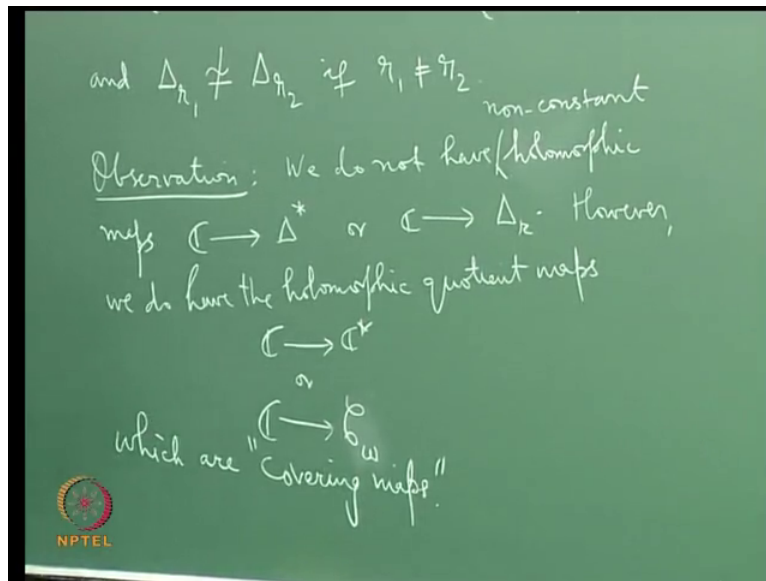 and Δ_{r_1} ≄ Δ_{r_2} if r_1 ≠ r_2.
non-constant
Observation: We do not have (holomorphic
maps ℂ ⟶ Δ* or ℂ ⟶ Δ_r. However,
we do have the holomorphic quotient maps
ℂ ⟶ ℂ*
or
ℂ ⟶ 𝒞_ω
which are "covering maps".
NPTEL